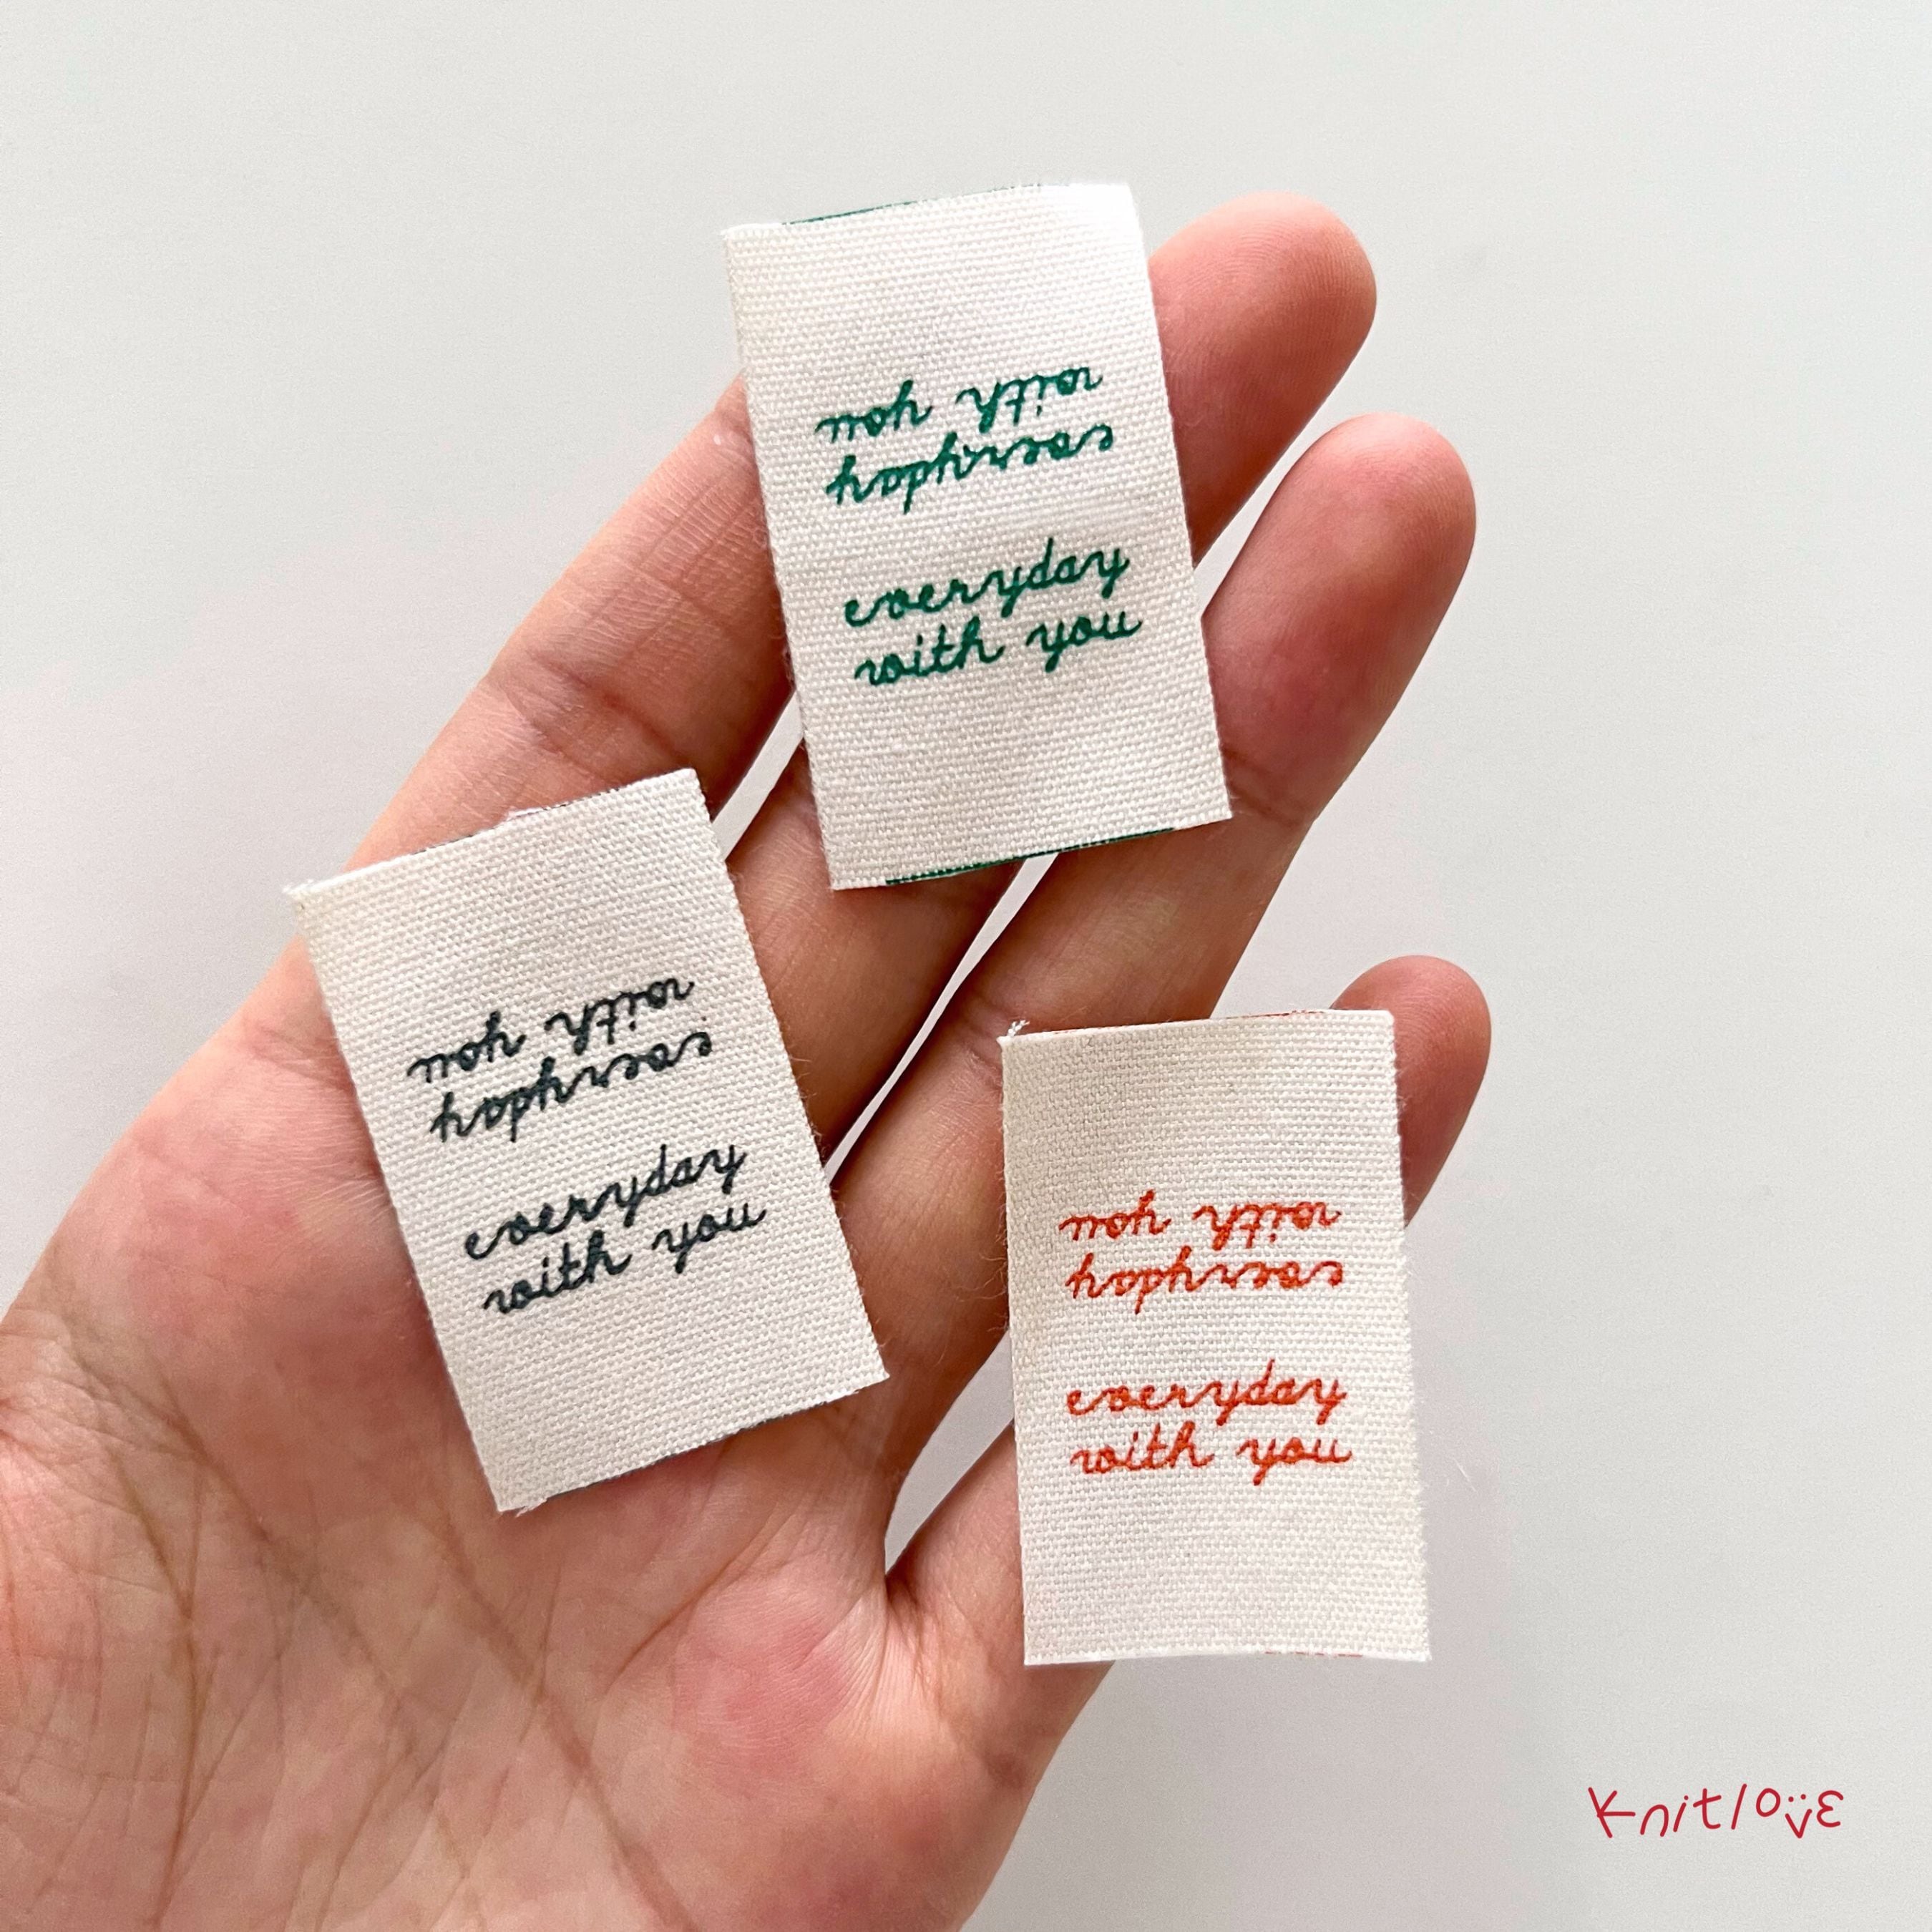 with you
everyday
everyday
with you
with you
everyday
everyday
with you
with you
everyday
everyday
with you
Knitlove